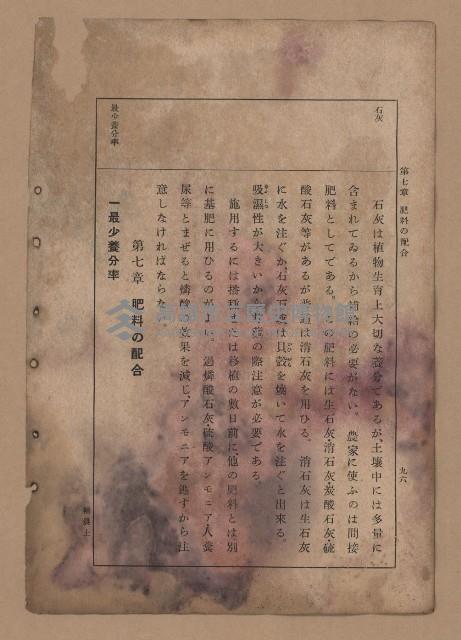 第七章 肥料の配合
九六
石灰
石灰は植物生育上大切な養分であるが、土壤中には多量に
含まれてゐるから補給の必要がない。農家に使ふのは間接
肥料としてである。この肥料には生石灰・消石灰・炭酸石灰・硫
酸石灰等があるが普通は消石灰を用ひる。消石灰は生石灰
に水を注ぐか、石灰石又は貝殼を燒いて水を注ぐと出來る。
吸濕性が大きいから貯藏の際注意が必要である。
施用するには播種又は移植の數日前に他の肥料とは別
に基肥に用ひるのがよい。過燐酸石灰・硫酸アンモニア・人糞
尿等とまぜると燐酸の效果を減じアンモニアを逃すから注
意しなければならない。
第七章 肥料の配合
最少養分率
一 最少養分率